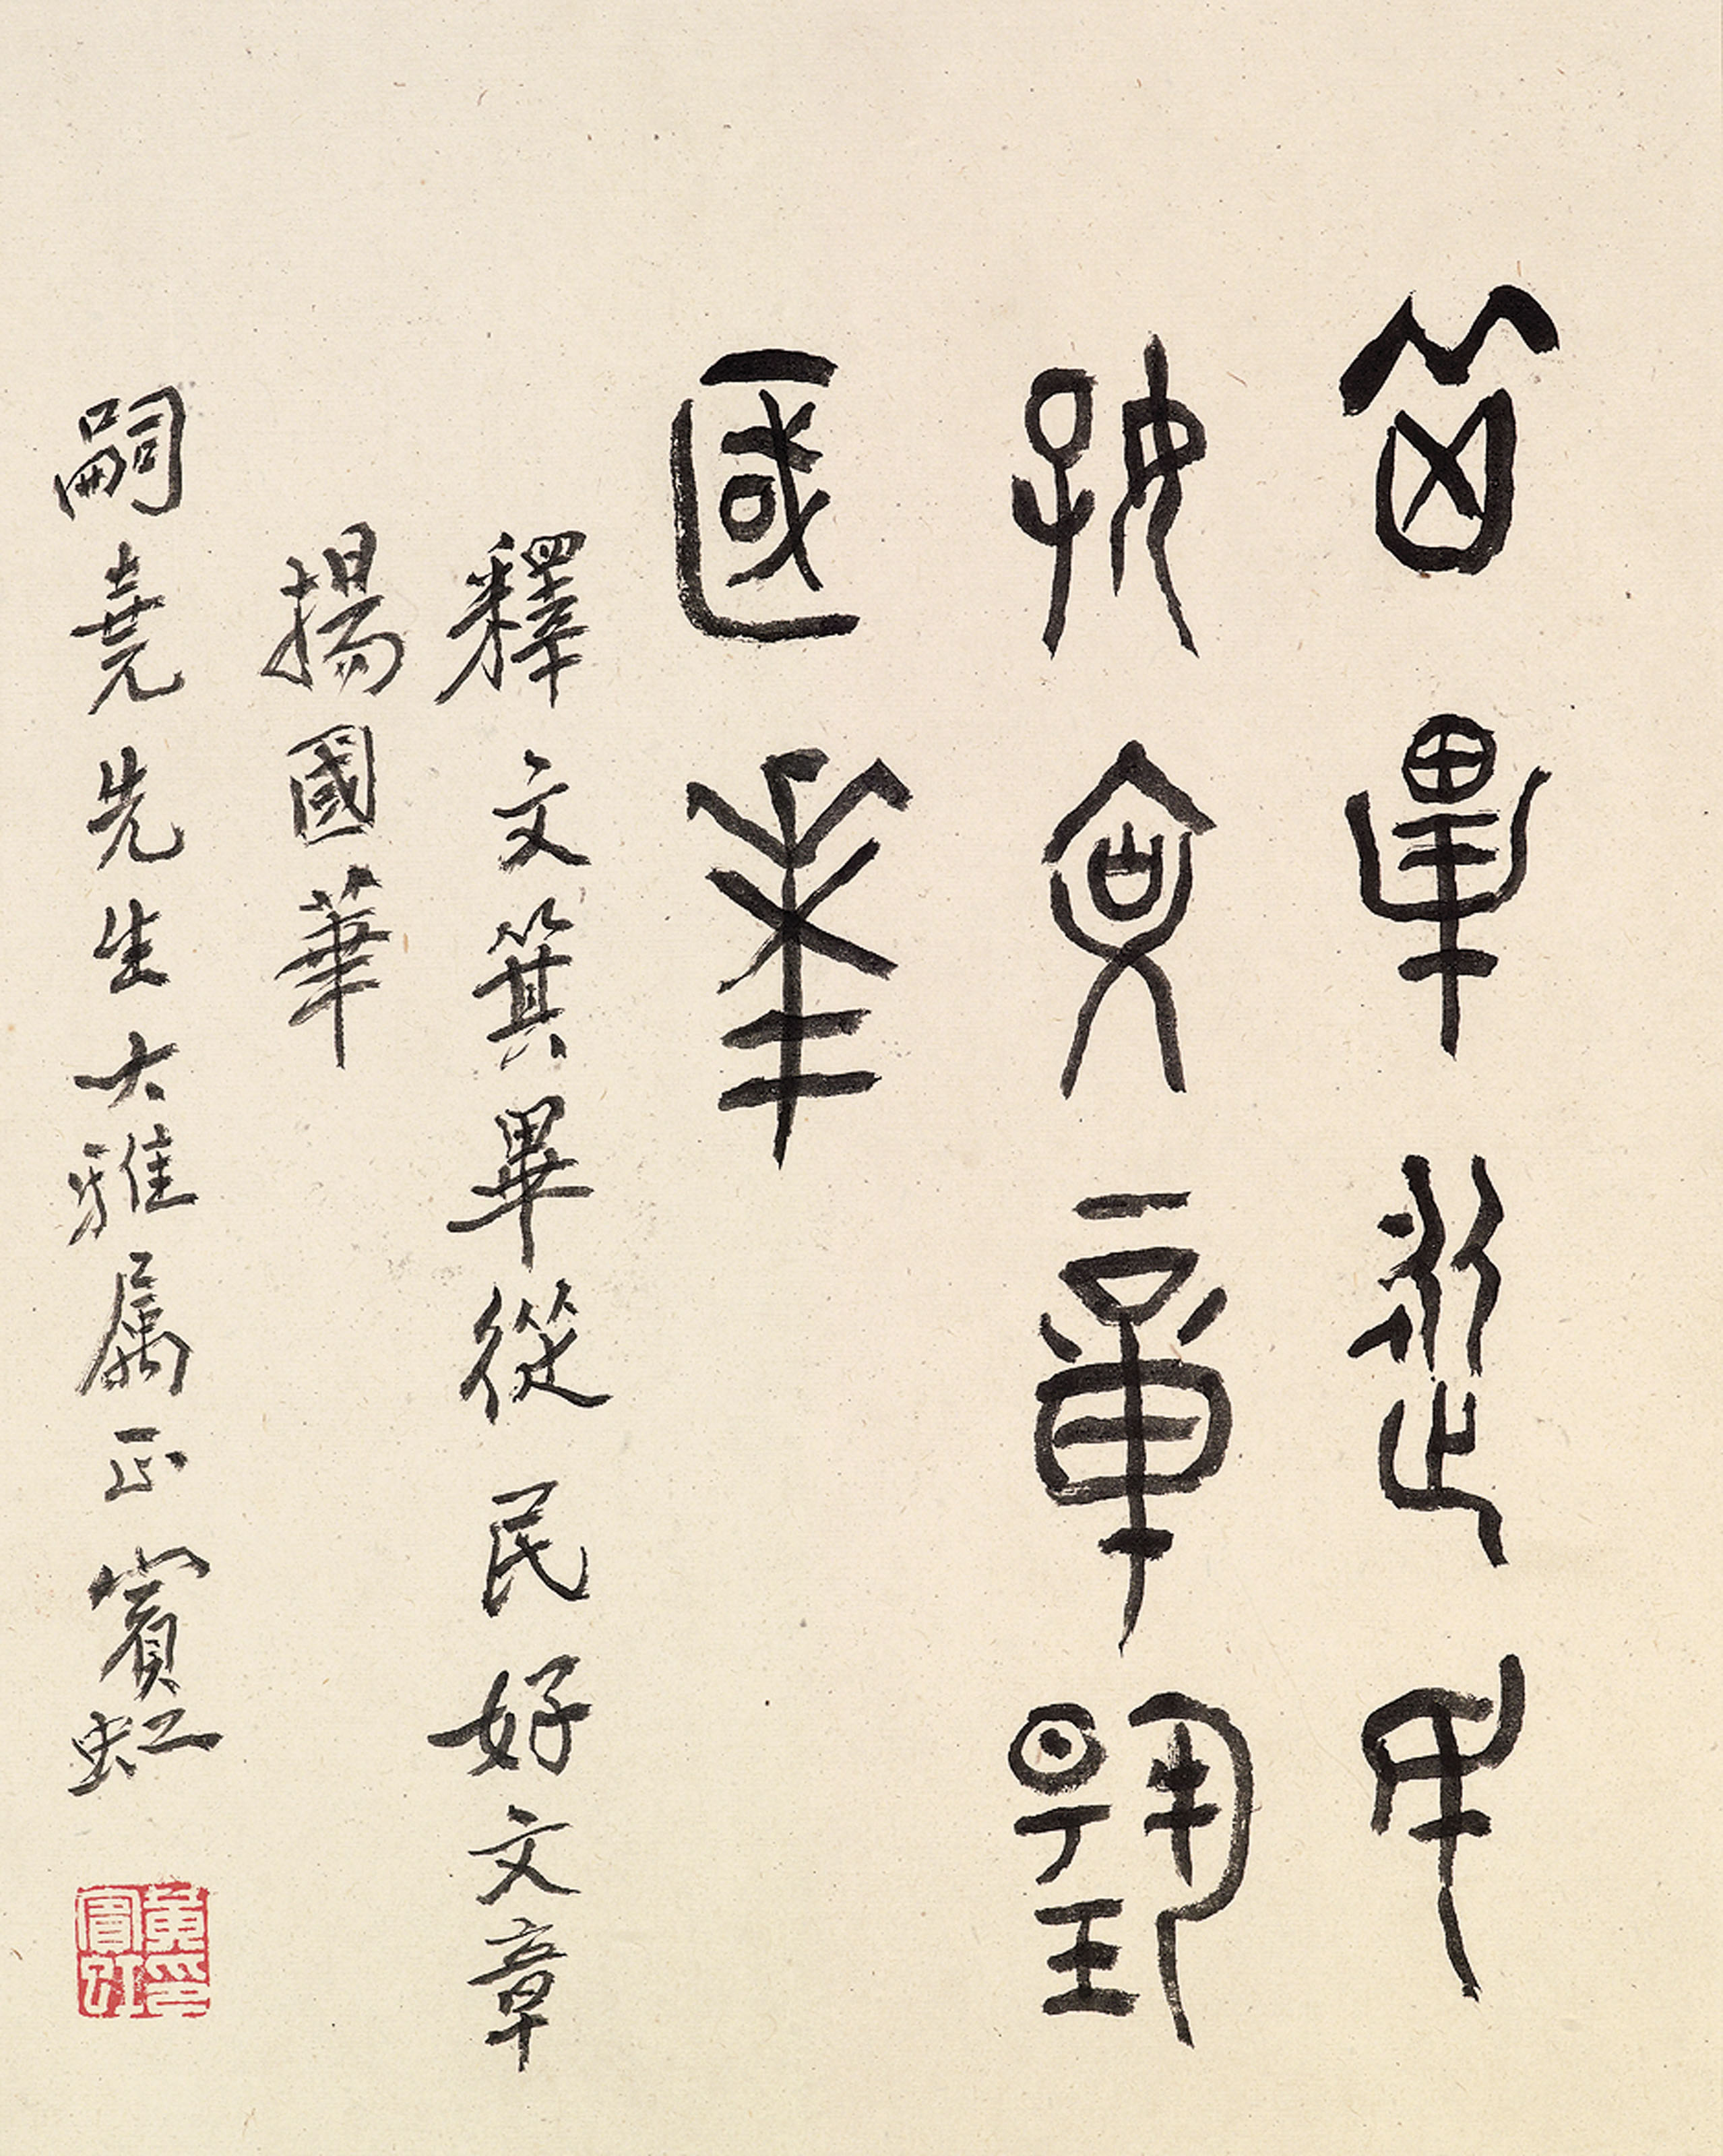 箕畢從民
好文章揚
國華
釋文箕畢從民好文章
揚國華
嗣堯先生大雅屬正賓虹
黃賓虹印